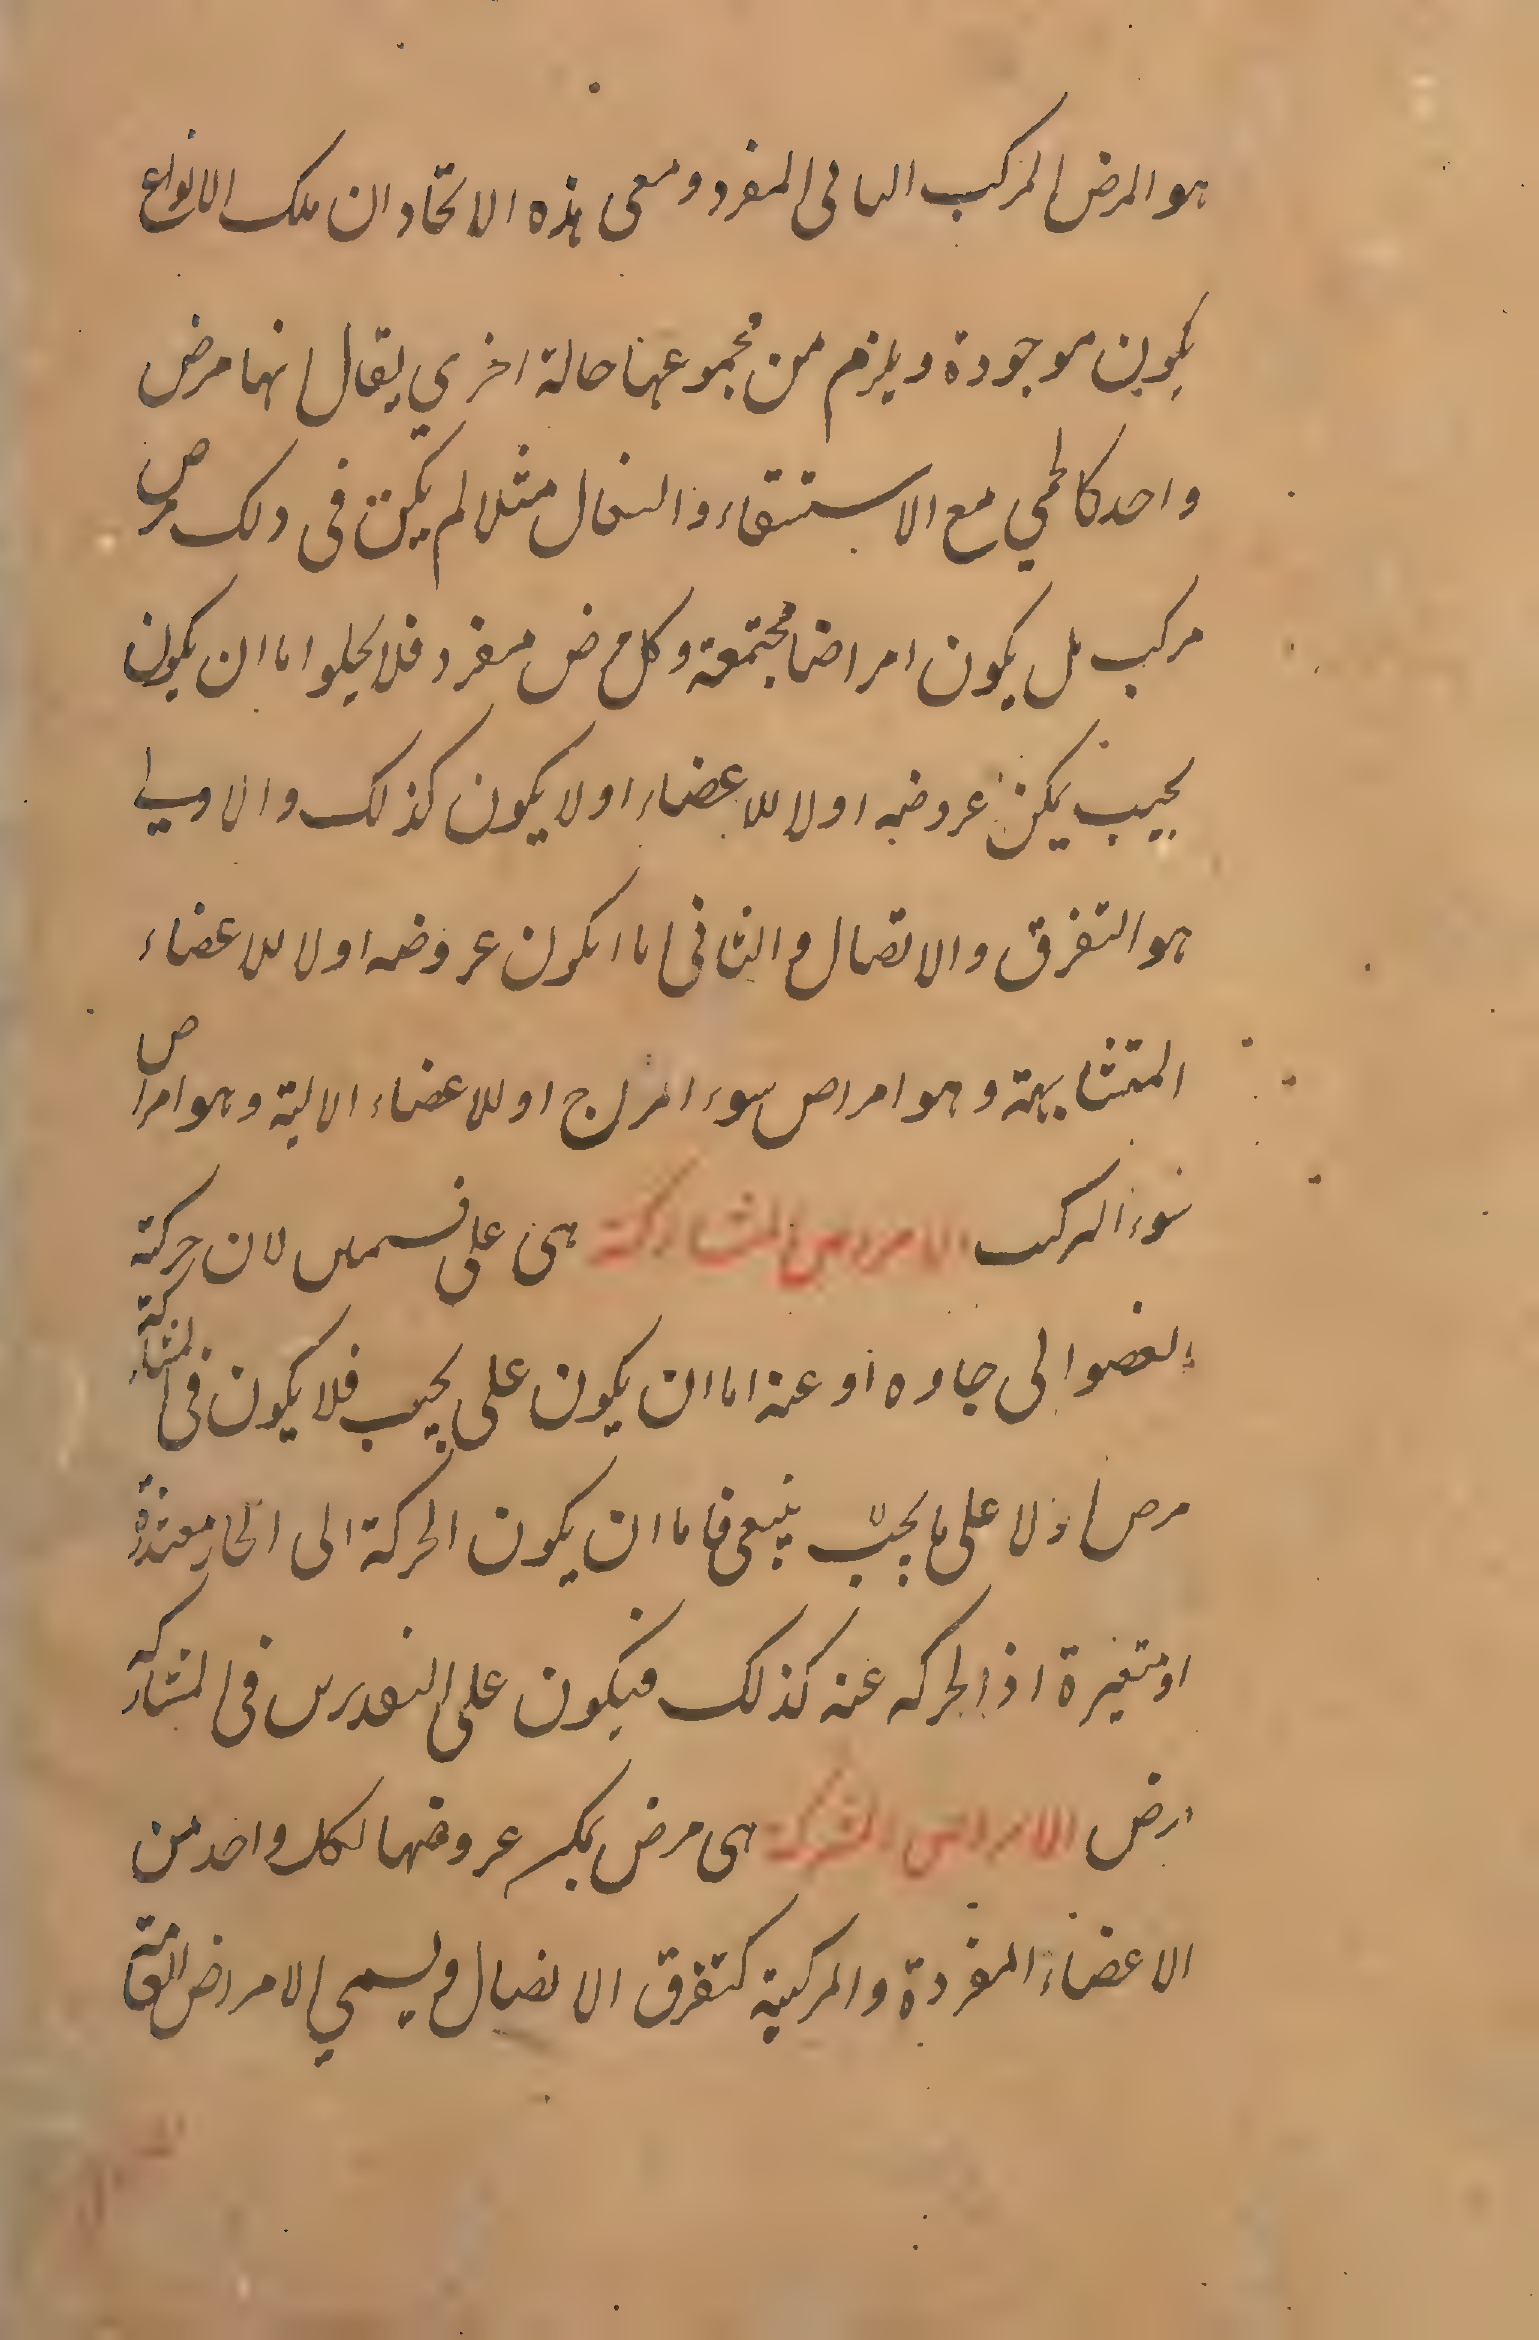 هو المرض المركب الثانى المفرد ومعنى هذه الاتحاد ان تلك الانواع
يكون موجودة ويلزم من مجموعها حالة اخرى يقال انها مرض
واحد كالحمي مع الاستسقاء والسعال مثلا لم يكن فى ذلك مرض
مركب بل يكون امراضا مجتمعة وكل مرض مفرد فلا يخلوا اما ان يكون
بحيث يمكن عروضه اولا للاعضاء اولا يكون كذلك والاولي
هو التفرق والاتصال والثانى اما يكون عروضه اولا للاعضاء
المتشابهة وهو امراض سوء المزاج او للاعضاء الالية وهو امراض
سوء المركب الامراض المشاركة هى على قسمين لان حركة
العضو الى جاوره او عنه اما ان يكون على يجب فلا يكون فى المشاركة
مرض او لا على ما يجب ينبغى فاما ان يكون الحركة الى الجار معتذرة
او متغيرة اذ الحركه عنه كذلك فيكون على التقديرين فى المشاركة
مرض الامراض المشتركة هى مرض يمكن عروضها لكل واحد من
الاعضاء المفردة والمركبة كتفرق الاتصال ويسمي الامراض العامة